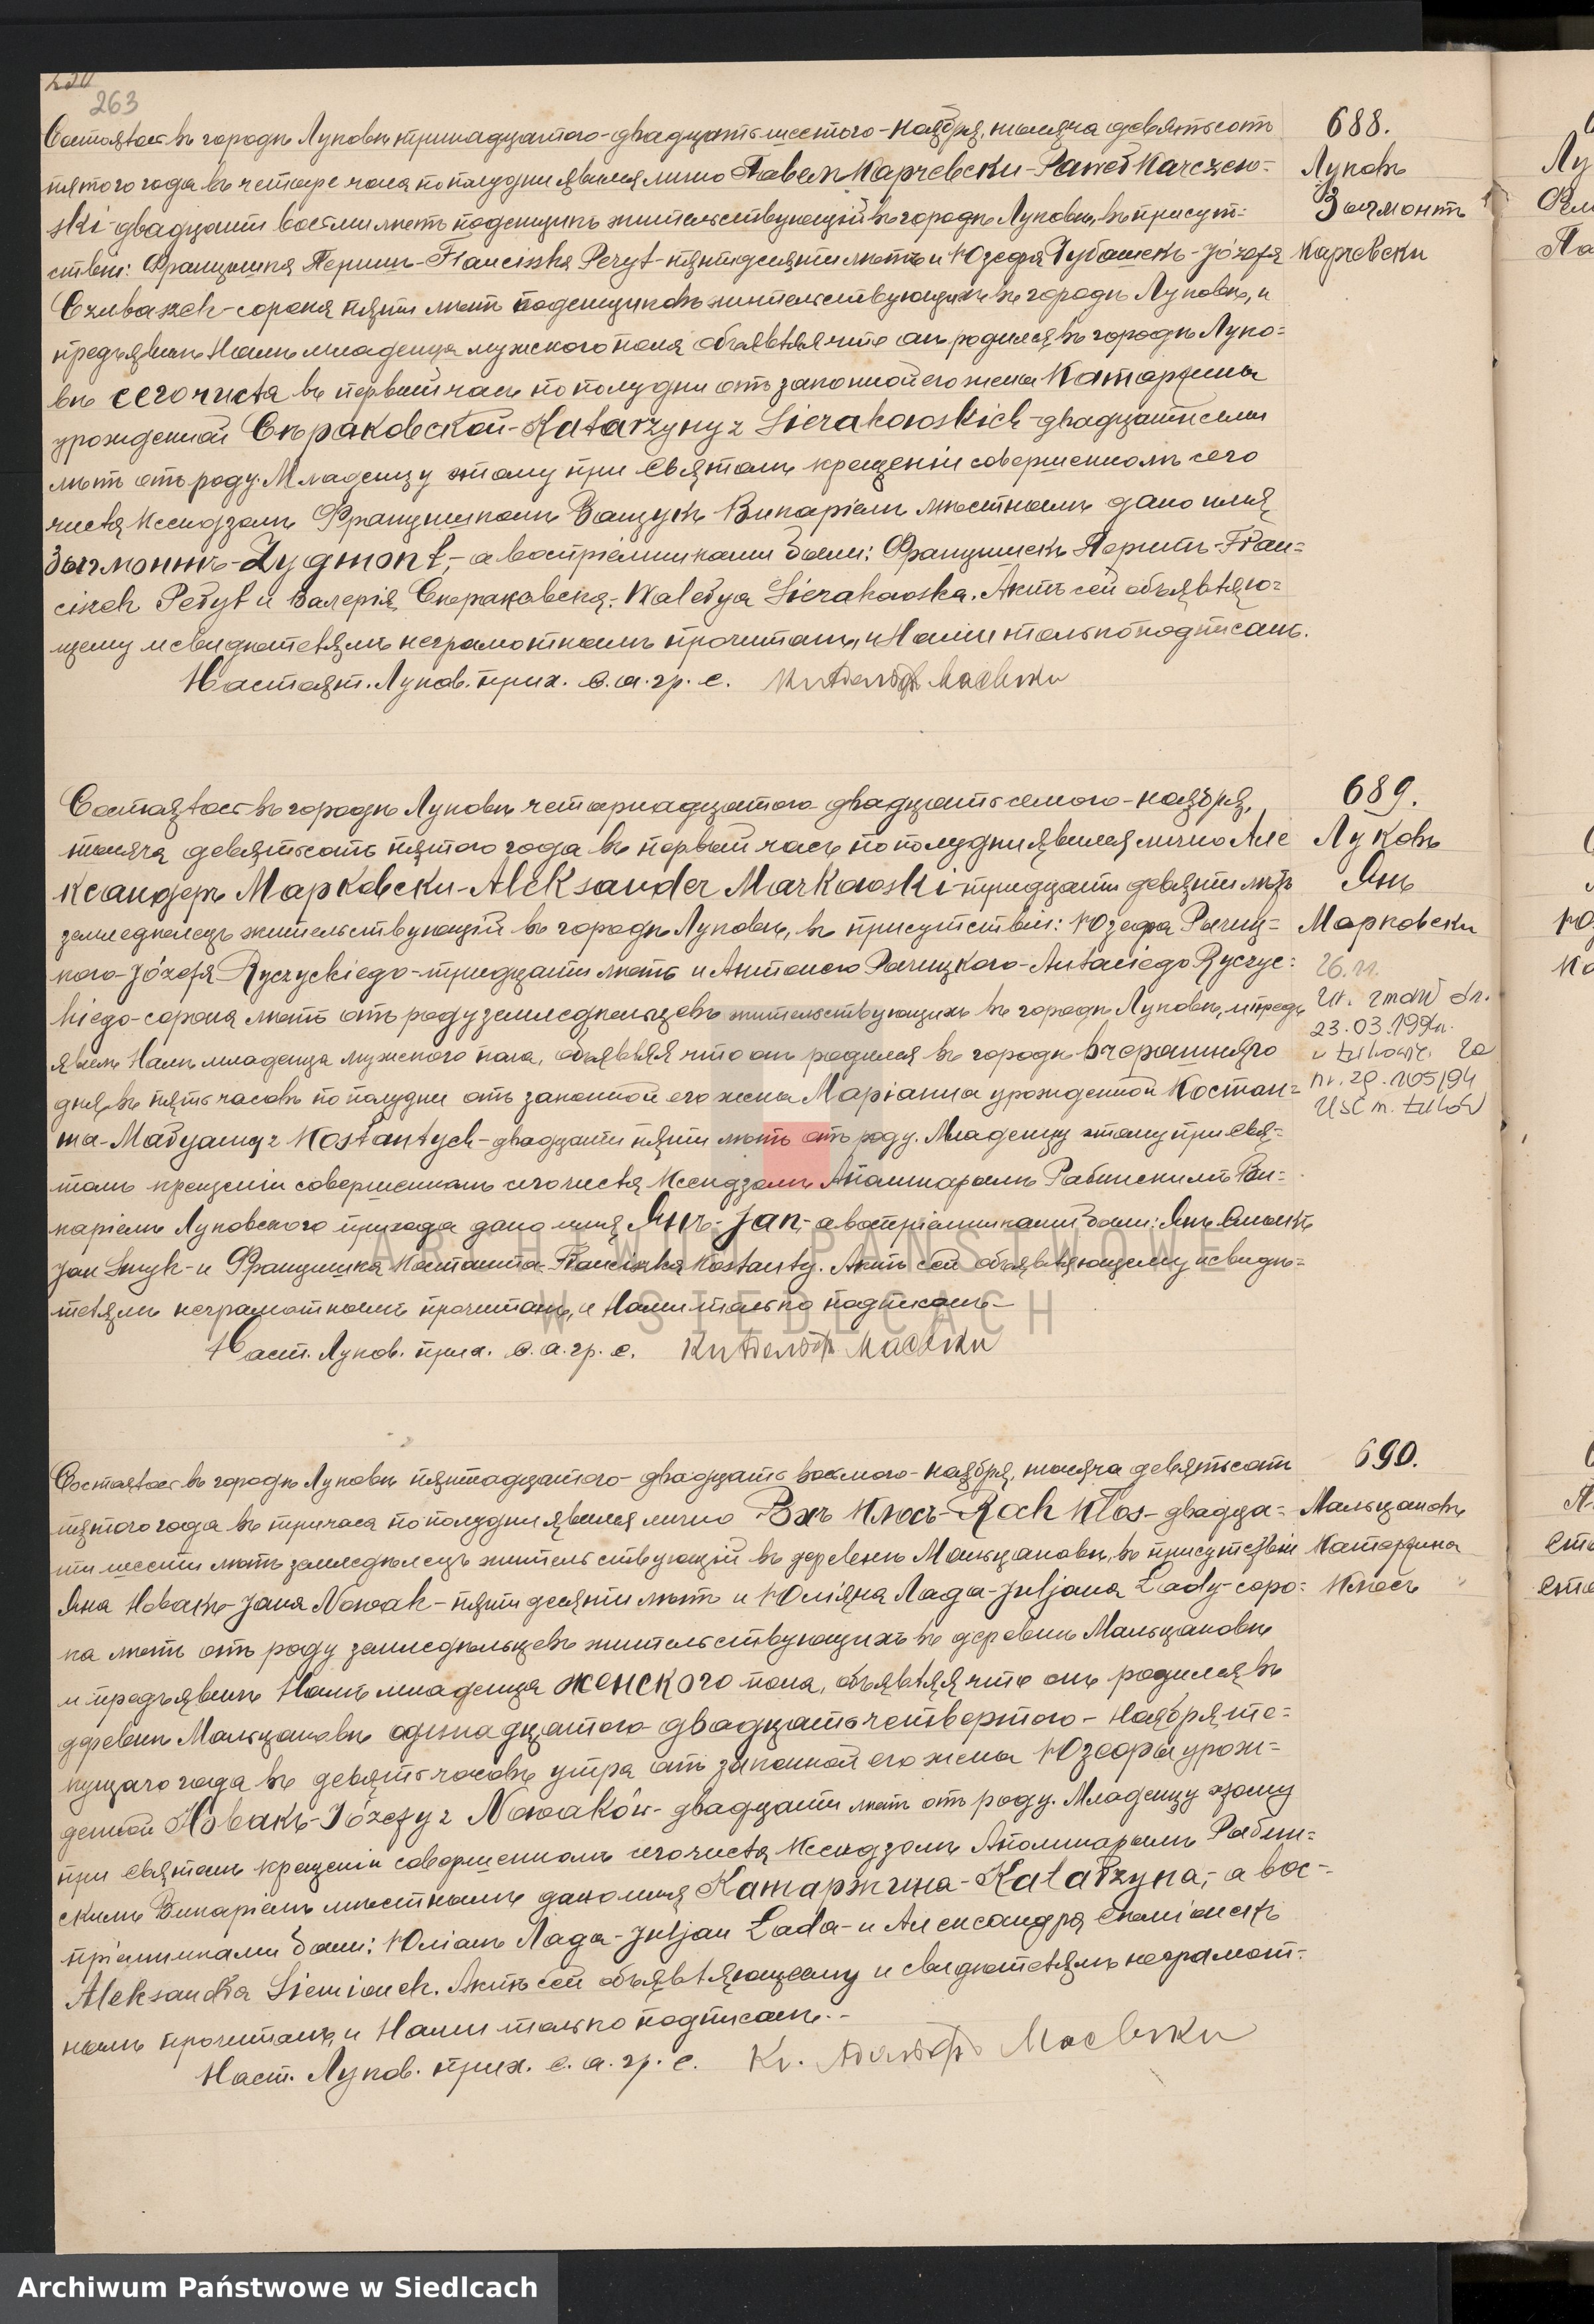 263
688.
Состоялось въ городѣ Луковѣ тринадцатого-двадцать шестого-ноября, тысяча девятьсотъ
пятого года въ четыре часа по полудни явился лично Павелъ Карчевски-Paweł Karczew-
ski-двадцати восьми лѣтъ поденщикъ жительствующій въ городѣ Луковѣ, въ присут-
ствіи: Францишка Перитъ-Franciszka Peryt-пятидесяти лѣтъ и Юзефа Чубашекъ-Józefa
Czubaszek-сорока пяти лѣтъ поденщиковъ жительствующихъ въ городѣ Луковѣ, и
предъявилъ Намъ младенца мужского пола объявляя что онъ родился въ городѣ Луко-
вѣ сего числа въ первый часъ по полудни отъ законной его жены Катаржины
урожденной Сѣраковской-Katarzyny z Sierakowskich-двадцати семи
лѣтъ отъ роду. Младенцу этому при Святомъ крещеніи совершенномъ сего
числа Ксендзомъ Францишкомъ Викаріемъ мѣстнымъ дано имя
Зыгмонтъ-Zygmont,-а воспріемниками были: Францишекъ Перитъ-Fran-
ciszek Peryt и Валерія Сѣраковска-Walerya Sierakowska. Актъ сей объявляю-
щему и свидѣтелямъ неграмотнымъ прочитанъ, и Нами только подписанъ.
Настоят. Луков. прих. с. а. гр. с.
Луковъ
Зыгмонтъ
Карчевски
689.
Состоялось въ городѣ Луковѣ четырнадцатого-двадцать седмого-ноября,
тысяча девятьсотъ пятого года въ первый часъ по полудни явился лично Але
ксандеръ Марковски-Aleksander Markowski-тридцати девяти лѣтъ
земледѣлецъ жительствующій въ городѣ Луковѣ, въ присутствіи: Юзефа Рычиц-
кого-Józefa Ryczyckiego-тридцати лѣтъ и Антонего Рычицкого-Antoniego Ryczyc-
kiego-сорока лѣтъ отъ роду земледѣльцевъ жительствующихъ въ городѣ Луковѣ, и предъ
явилъ Намъ младенца мужского пола, объявляя что онъ родился въ городѣ вчерашняго
дня въ пять часовъ по полудни отъ законной его жены Маріанна урожденной Костан-
та-Maryanny z Kostantych-двадцати пяти лѣтъ отъ роду. Младенцу этому при Свя-
томъ крещеніи совершенномъ сего числа Ксендзомъ Аполинарымъ Рабинскимъ Ви-
каріемъ Луковского прихода дано имя Янъ-Jan,-а воспріемниками были: Янъ
Jan и Францишка Костанта-Franciszka Kostanty. Актъ сей объявляющему и свидѣ-
телямъ неграмотнымъ прочитанъ, и Нами только подписанъ-
Наст. Луков. прих. с. а. гр. с.
Луковъ
Янъ
Марковски
26.11.
zmarł dn.
23.03.1994r.
w Łukowie.
nr. 105/94
USC m. Łuków
690.
Состоялось въ городѣ Луковѣ пятнадцатого-двадцать восьмого-ноября, тысяча девятьсотъ
пятого года въ три часа по полудни явился лично Рохъ Клось-Roch Kłos-двадца-
ти шести лѣтъ земледѣлецъ жительствующій въ деревнѣ Мальцановѣ, въ присутствіи
Яна Новакъ-Jana Nowak-пятидесяти лѣтъ и Юліяна Лада-Juljana Łady-соро-
ка лѣтъ отъ роду земледѣльцевъ жительствующихъ въ деревнѣ Мальцановѣ
и предъявилъ Намъ младенца женского пола, объявляя что онъ родился въ
деревнѣ Мальцановѣ одинадцатого-двадцать четвертого-Ноября те-
кущаго года въ девять часовъ утра отъ законной его жены Юзефы урож-
денной Новакъ-Józefy z Nowaków-двадцати лѣтъ отъ роду. Младенцу этому
при святомъ крещеніи совершенномъ сего числа Ксендзомъ Аполинарымъ Рабин-
скимъ Викаріемъ мѣстнымъ дано имя Катаржина-Katarzyna,-а вос-
пріемниками были: Юліанъ Лада-Juljan Łada-и Александра
Aleksandra Siemionek. Актъ сей объявляющему и свидѣтелямъ неграмот-
нымъ прочитанъ, и Нами только подписанъ.-
Наст. Луков. прих. с. а. гр. с.
Мальцановъ
Катаржина
Клось
ARCHIWUM PAŃSTWOWE
W SIEDLCACH
Archiwum Państwowe w Siedlcach